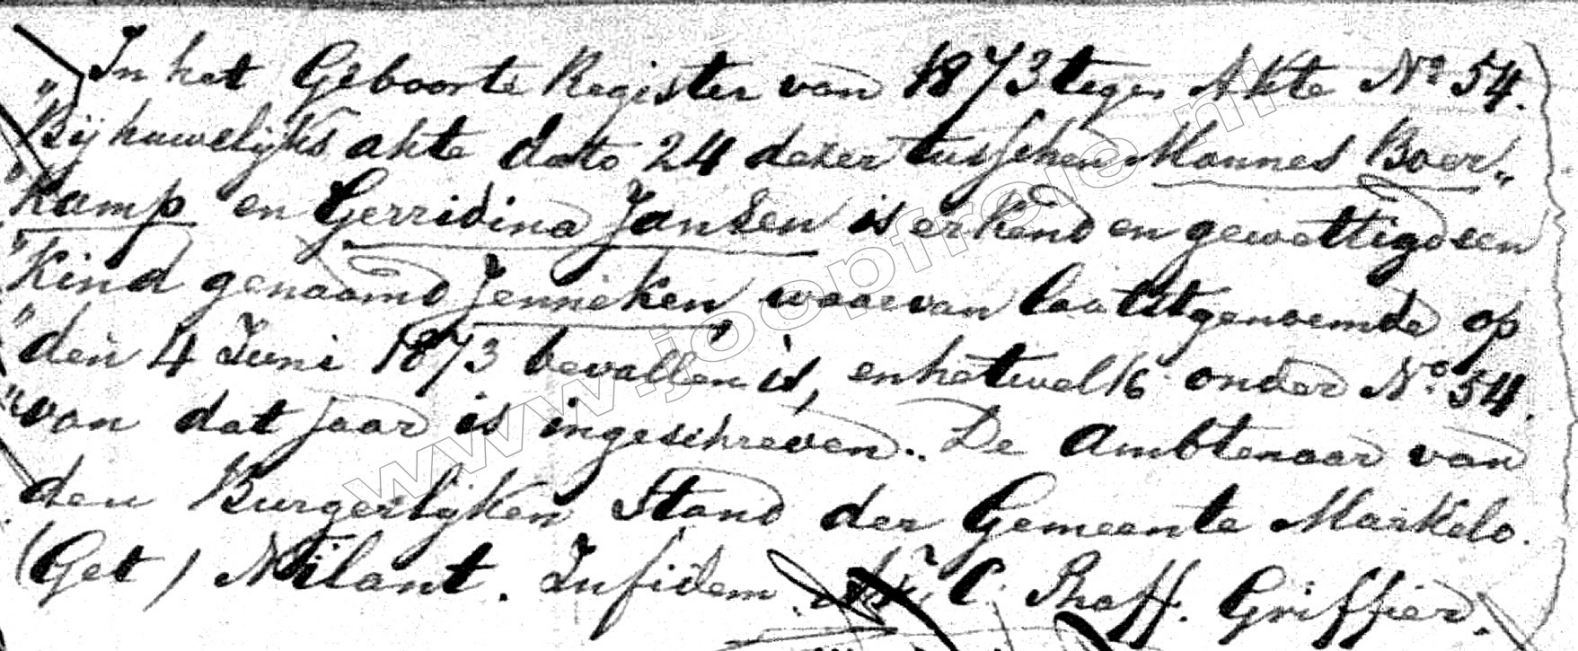 In het Geboorte Register van 1873 tegen Akte No 54.
"Bij huwelijks akte dato 24 dezer tusschen Mannes Boer„
"kamp en Gerridina Jansen is erkend en gewettigd een
"Kind genaamd Jenneken, waarvan laatstgenoemde op
"den 4 Juni 1873 bevallen is, en hetwelk onder No 54.
"van dat jaar is ingeschreven. De Ambtenaar van
den Burgerlijken Stand der Gemeente Markelo.
(Get) Nilant. Infidem. C. Phaff. Griffier.
www.joopfrowe.nl